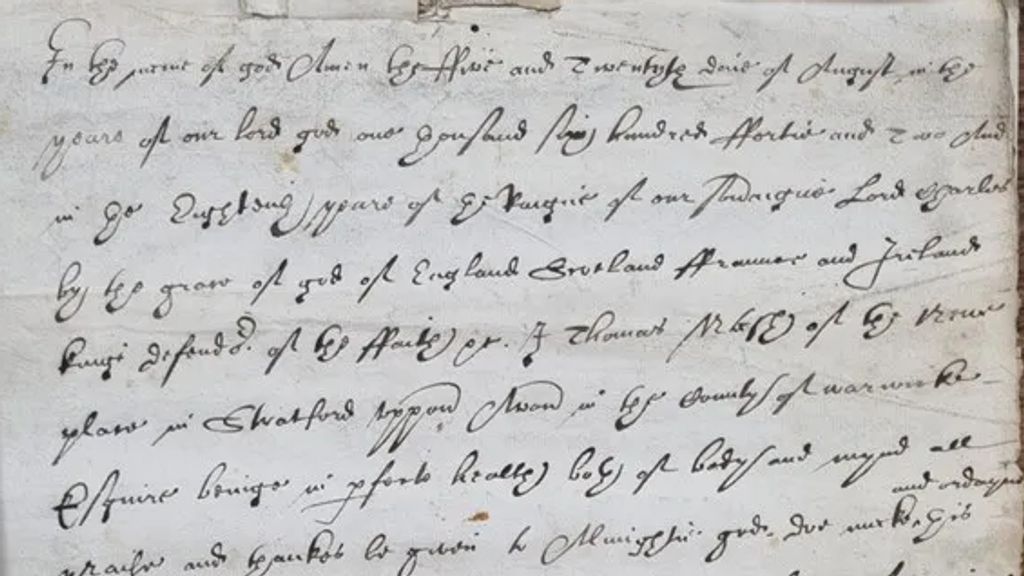 In the name of god Amen the ffive and Twentyth daie of August in the
yeare of our lord god one thousand six hundred ffortie and Two And
in the Eighteenth yeare of the Raigne of our Soveraigne Lord Charles
by the grace of god of England Scotland ffraunce and Ireland
kinge defendr. of the ffaith &c. I Thomas Nash of the Newe
place in Stratford uppon Avon in the County of warwicke
Esquire beinge in pfecte health both of body and mynd all
prayse and thankes be given to Almightie god, doe make this
and ordayne